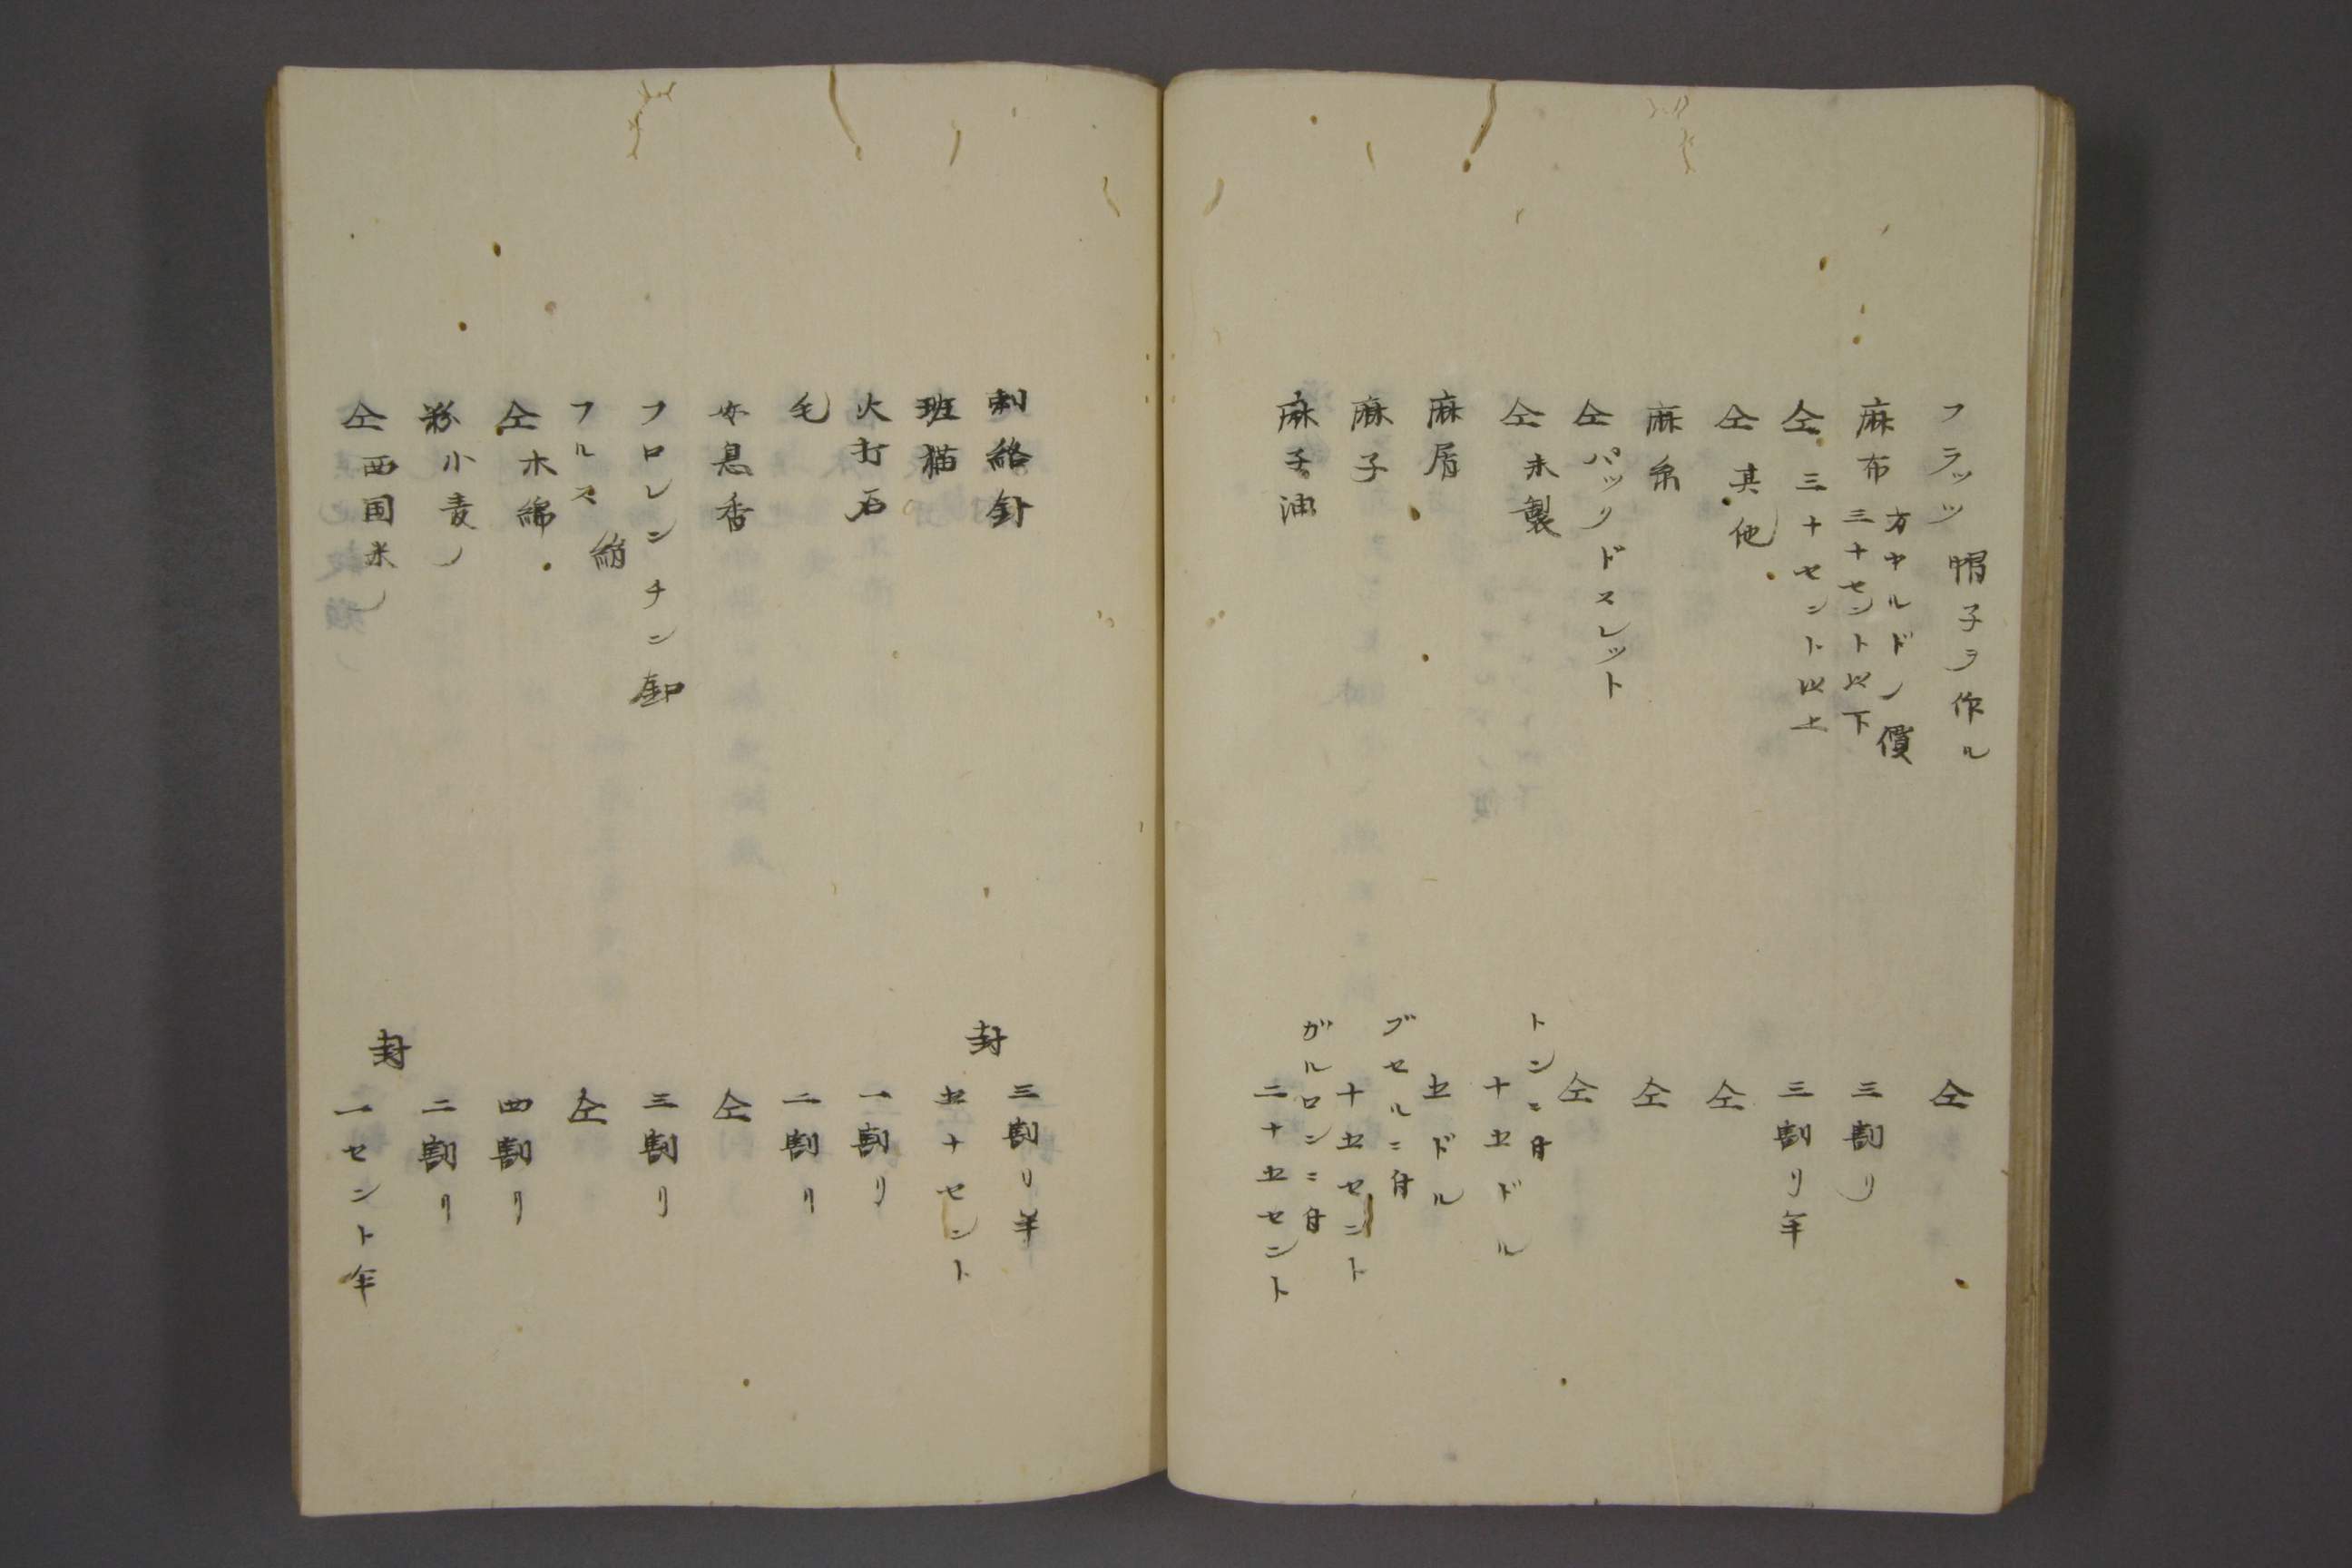 フラッツ 帽子ヲ作ル 仝
麻布 方ヤルドノ價 三十セント以下 三割リ
仝 三十セント以上 三割リ半
仝 其他 仝
麻糸 仝
仝 パックドスレット 仝
仝 未製 トンニ付 十五ドル
麻屑 五ドル
麻子 ブセルニ付 十五セント
麻子油 ガルロンニ付 二十五セント
刺絡針 三割リ半
班猫 封 五十セント
火打石 一割リ
毛 二割リ
安息香 仝
フロレンチン 釦 三割リ
フルス 絹 仝
仝 木綿 四割リ
粉 小麦ノ 二割リ
仝 西国米ノ 封 一セント半